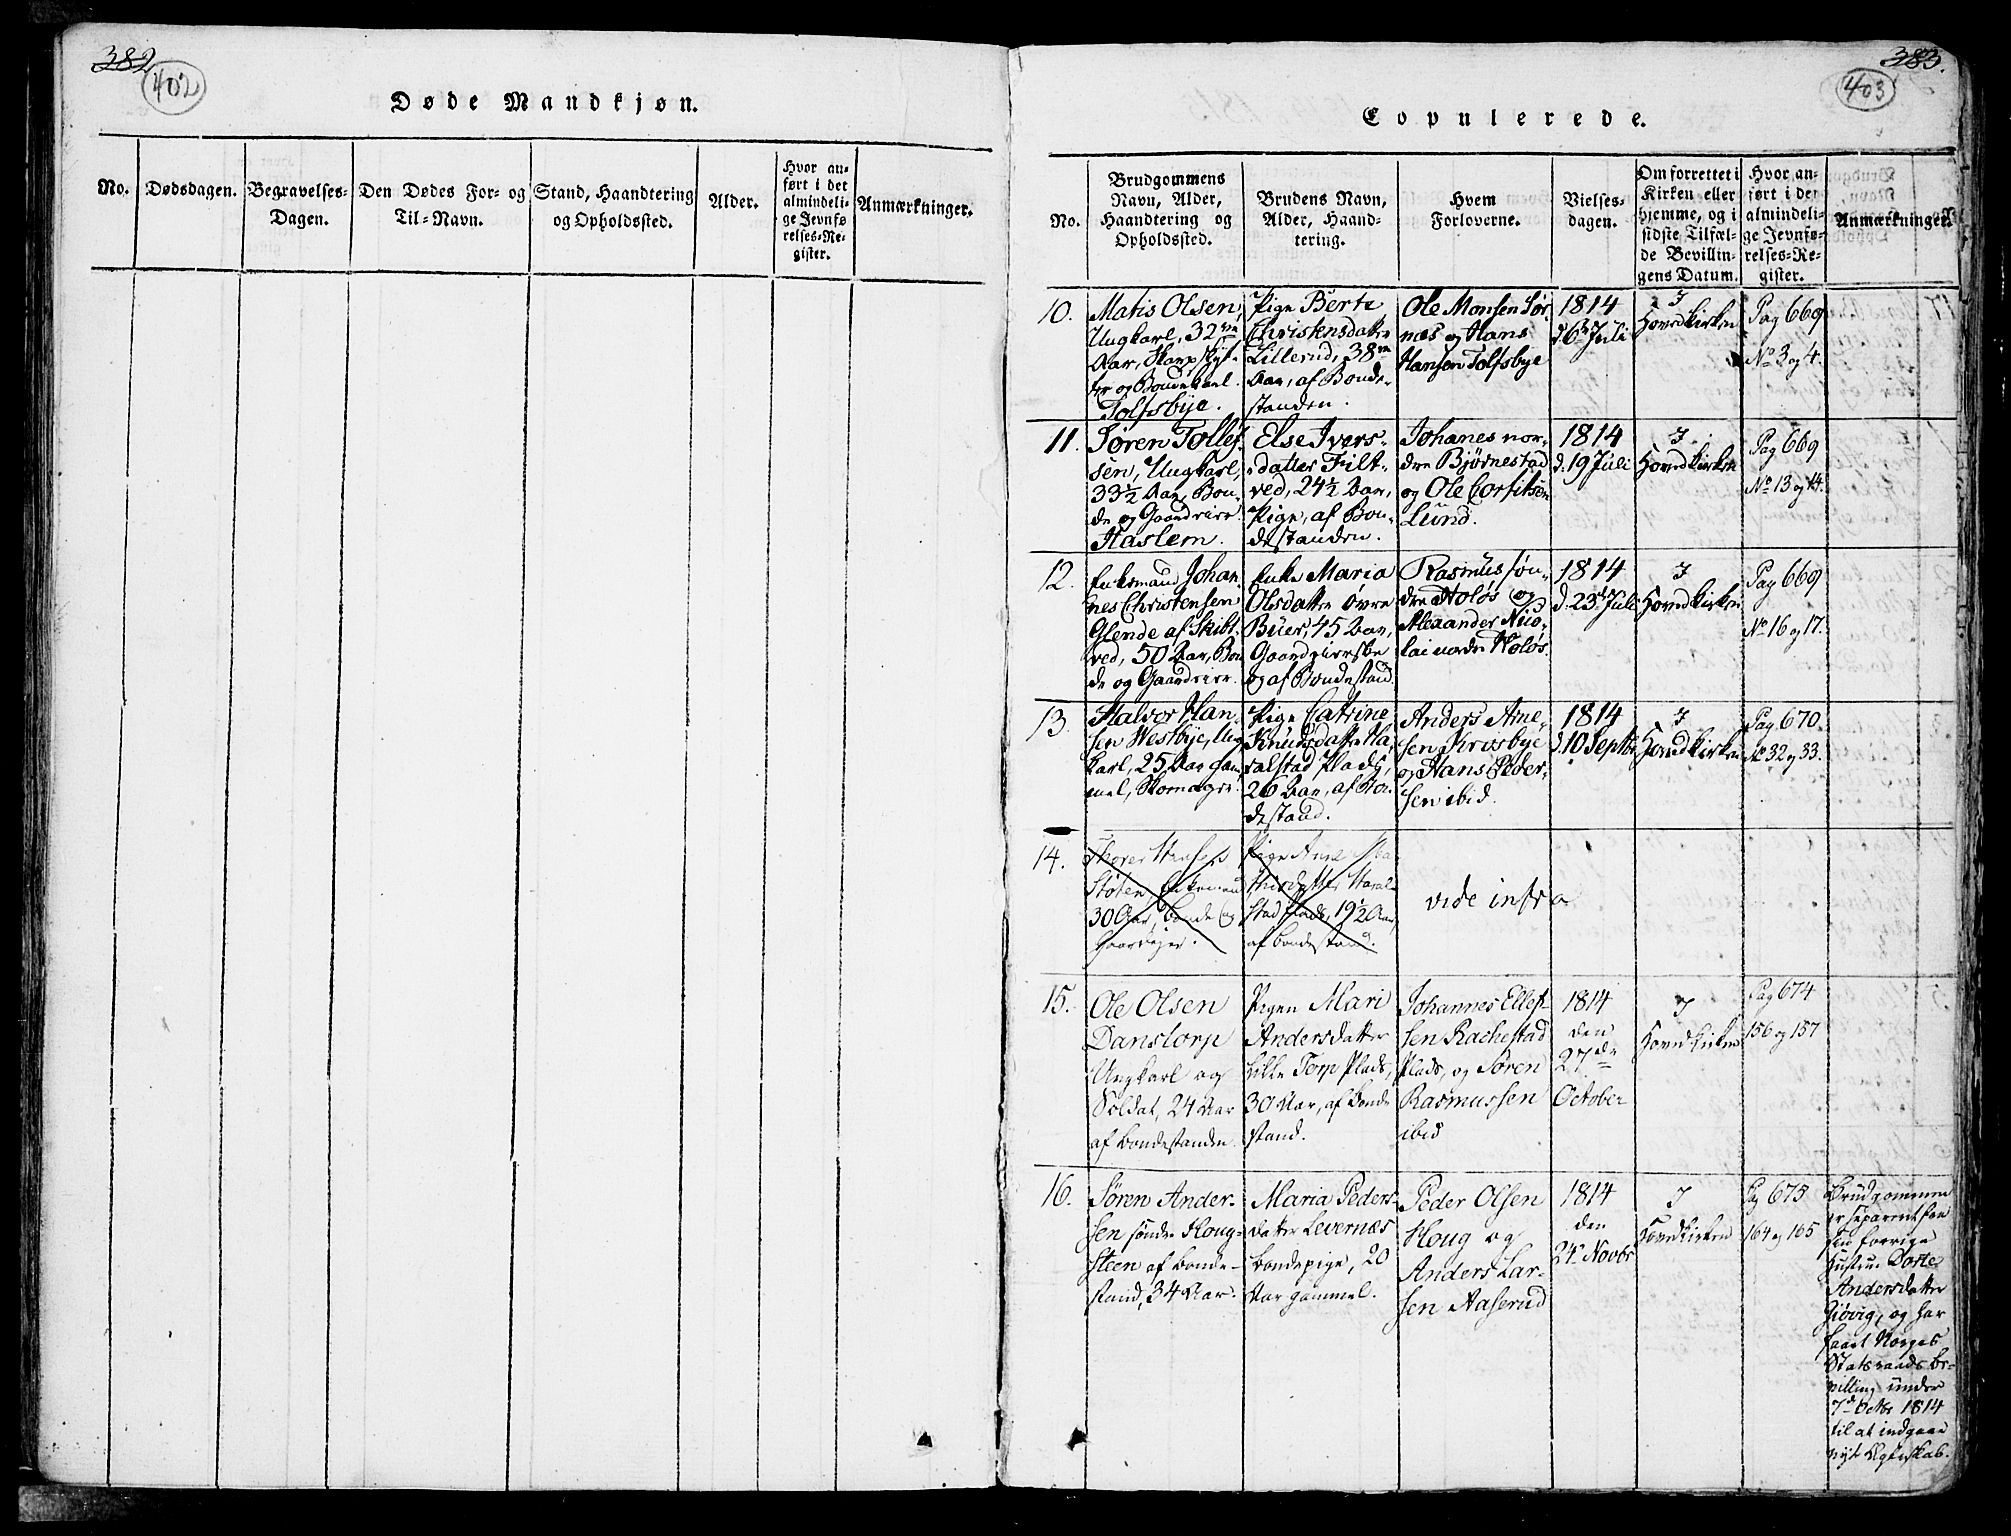 382
402
Døde Mandkjøn.
No.
Dødsdagen.
Begravelses-
Dagen.
Den Dødes For- og
Til-Navn.
Stand, Haandtering
og Opholdssted.
Alder.
Hvor an-
ført i det
almindeli-
ge Jevnfø
relses-Re-
gister.
Anmærkninger.
383.
403
Copulerede.
No.
Brudgommens
Navn, Alder,
Haandtering og
Opholdssted.
Brudens Navn,
Alder, Haand-
tering.
Hvem
Forloverne.
Vielses-
dagen.
Om forrettet i
Kirken eller
hjemme, og i
sidste Tilfæl-
de Bevillin-
gens Datum.
Hvor an-
ført i det
almindeli-
ge Jevnfø-
relses-Re-
gister.
Anmærkninger.
10.
Matis Olsen,
Ungkarl, 32
Aar, Skarpskyt-
ter og Bondekarl
Tolfsbye.
Pige Berte
Christensdatter
Lillerud, 38
Aar, af Bonde-
standen.
Ole Monsen Sør
næs og Hans
Hansen Tolfsbye
1814
d. 6 Juli
I
Hovedkirken
Pag 669
No 3 og 4.
11.
Søren Tollef
sen, Ungkarl,
33½ Aar, Bon-
de og Gaardeier
Haslem.
Else Ivers-
datter Filt-
ved, 24½ Aar,
Pige, af Bon-
destanden.
Johanes nor-
dre Bjørnestad
og Ole Corfitsen
Lund.
1814
d. 19 Juli
I
Hovedkirken
Pag 669
No 13 og 14.
12.
Enkemand Johan
nes Christensen
Glende af Skibt
ved, 50 Aar, Bon
de og Gaardeier.
Enke Maria
Olsdatter øvre
Buer, 45 Aar,
Gaardeierske
og af Bondestand.
Rasmus søn-
dre Holøs og
Alexander Nico-
lai nordre Holøs.
1814
d. 23 Juli
I
Hovedkirken
Pag 669
No 16 og 17.
13.
Halvor Han-
sen Westbye, Ung
karl, 25 Aar gam
mel, Skomager.
Pige Catrine
Knudsdatter Ha-
ralstad Plads,
26 Aar, af Bon-
destand.
Anders Arne-
sen Krosbye
og Hans Peder-
sen ibid.
1814
d. 10 Septbr
I
Hovedkirken
Pag 670.
No 32 og 33.
14.
Hansen
Støten, Enkemand
30 Aar, Bonde og
Gaardejer.
Pige Ane
datter Haral-
stad Plads, 19½ Aar,
af bondestand.
vide infra
15.
Ole Olsen
Danstorp
Ungkarl og
Soldat, 24 Aar
af bondestanden.
Pigen Mari
Andersdatter
Lille Torp Plads,
30 Aar, af bonde
stand.
Johannes Ellef-
sen Rachestad
Plads, og Søren
Rasmussen
ibid
1814
den
27de
October
I
Hovedkirken
Pag 674
156 og 157
16.
Søren Ander-
sen søndre Houg-
steen af bonde-
stand, 34 Aar.
Maria Peders-
datter Levernæs
bondepige, 20
Aar gammel.
Peder Olsen
Houg og
Anders Lar-
sen Aaserud
1814
den
24 Novbr
I
Hovedkirken
Pag 675
164 og 165
Brudgommen
er separeret fra
sin forrige
Hustrue Dorte
Andersdatter
Giøvig, og har
faaet Norges
Statsraads be-
villing under
7d Octbr 1814
til at indgaae
nyt Ægteskab.